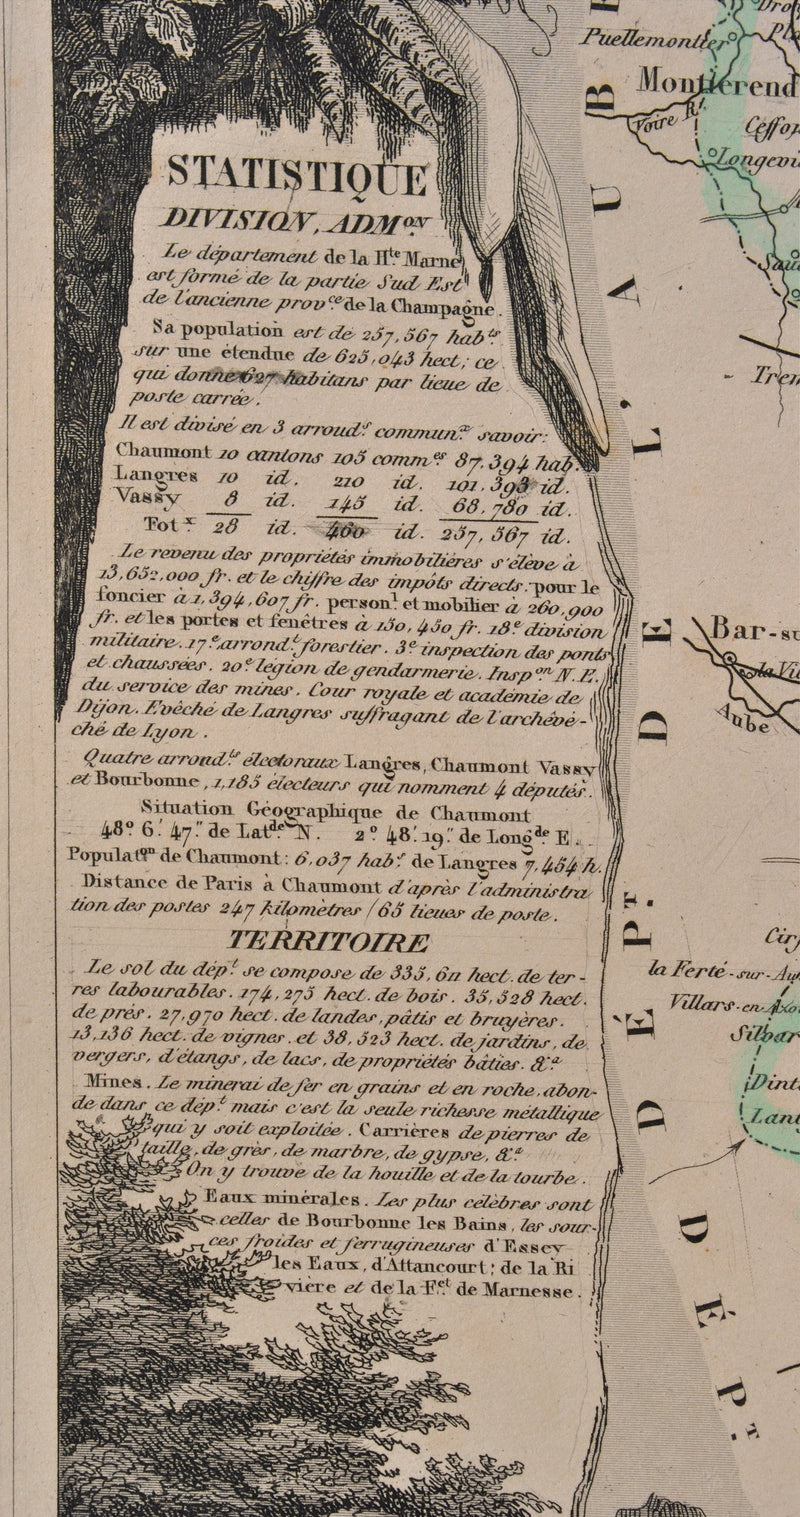 STATISTIQUE
DIVISION, ADM.on
Le département de la H.te Marne
est formé de la partie Sud Est
de l'ancienne prov.ce de la Champagne.
Sa population est de 257,567 hab.ts
sur une étendue de 625,043 hect; ce
qui donne 627 habitans par lieue de
poste carrée.
Il est divisé en 3 arroud.s commun.x savoir:
Chaumont 10 cantons 105 comm.es 87,394 hab.
Langres 10 id. 210 id. 101,393 id.
Vassy 8 id. 145 id. 68,780 id.
Tot.x 28 id. 460 id. 257,567 id.
Le revenu des propriétés immobilières s'élève à
13,652,000 fr. et le chiffre des impôts directs pour le
foncier à 1,394,607 fr. person.l et mobilier à 260,900
fr. et les portes et fenêtres à 130,430 fr. 18.e division
militaire. 17.e arrond.t forestier. 3.e inspection des ponts
et chaussées. 20.e légion de gendarmerie. Insp.on N.E.
du service des mines. Cour royale et académie de
Dijon. Evêché de Langres suffragant de l'archévê-
ché de Lyon.
Quatre arroud.ts électoraux Langres, Chaumont Vassy
et Bourbonne, 1,185 électeurs qui nomment 4 députés.
Situation Géographique de Chaumont
48° 6' 47" de Lat.de N. 2° 48' 19" de Long.de E.
Populat.on de Chaumont: 6,037 hab.s de Langres 7,464 h.
Distance de Paris à Chaumont d'après l'administra
tion des postes 247 kilomètres (63 lieues de poste.
TERRITOIRE
Le sol du dép.t se compose de 335,611 hect. de ter-
res labourables. 174,275 hect. de bois. 35,528 hect.
de prés. 27,970 hect. de landes, pâtis et bruyères.
13,136 hect. de vignes. et 38,523 hect. de jardins, de
vergers, d'étangs, de lacs, de propriétés bâties. &.a
Mines. Le minerai de fer en grains et en roche, abon-
de dans ce dép.t mais c'est la seule richesse métallique
qui y soit exploitée. Carrières de pierres de
taille, de grès, de marbre, de gypse, &.a
On y trouve de la houille et de la tourbe.
Eaux minérales. Les plus célèbres sont
celles de Bourbonne les Bains, les sour-
ces froides et ferrugineuses d'Essey
les Eaux, d'Attancourt; de la Ri
vière et de la F.et de Marnesse.
Puellemontier
Montiérend
Voire R.
Ceffon
Longevi
Trem
DÉP.T DE L'AUBE
Bar-su
Aube
la Ferté-sur-Au
Villars-en-Azo
Silvar
Dint
Lant
DÉP.T D